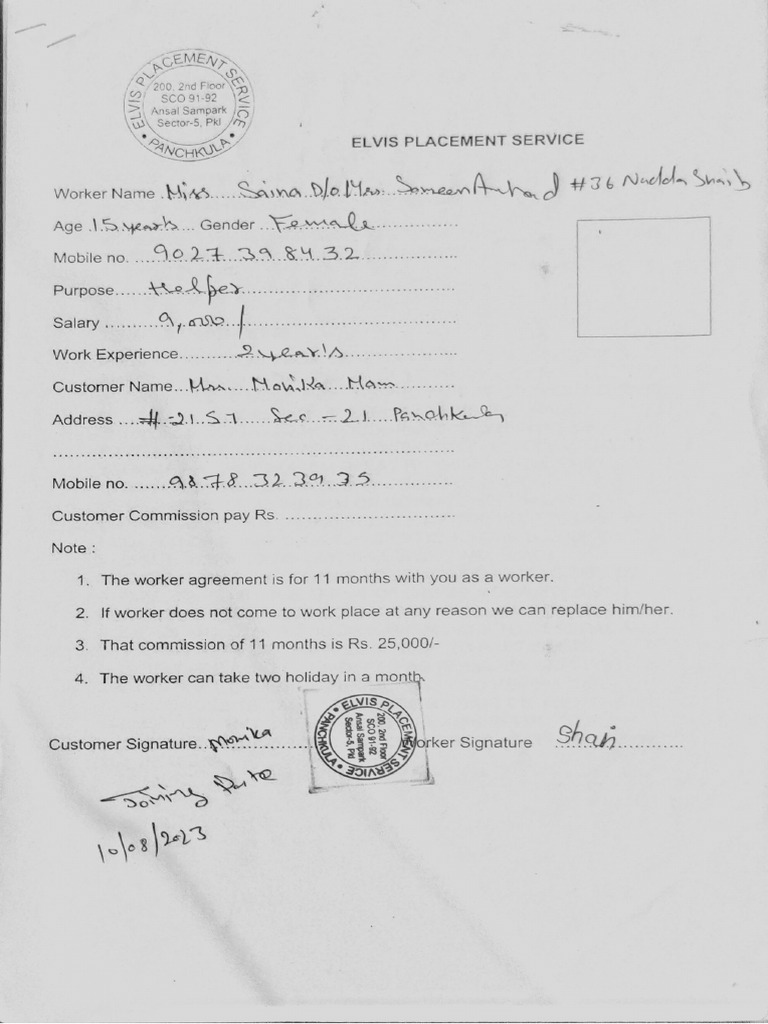 ELVIS PLACEMENT SERVICE
200, 2nd Floor
SCO 91-92
Ansal Sampark
Sector-5, Pkl
• PANCHKULA •
ELVIS PLACEMENT SERVICE
Worker Name . Miss ..... Saina D/o. Mrs. #36 Nadda Shaib
Age .15 years... Gender ..Female
Mobile no. ....9027398432
Purpose......Helper
Salary ..........9,000/
Work Experience..........2 year's
Customer Name...Mrs. Monika Mam
Address ....#-2157 Sec-21 Panchkula
Mobile no. .......9878323935
Customer Commission pay Rs. ................................
Note :
1. The worker agreement is for 11 months with you as a worker.
2. If worker does not come to work place at any reason we can replace him/her.
3. That commission of 11 months is Rs. 25,000/-
4. The worker can take two holiday in a month.
ELVIS PLACEMENT SERVICE
200, 2nd Floor
SCO 91-92
Ansal Sampark
Sector-5, Pkl
• PANCHKULA •
Customer Signature..Monika............ Worker Signature ....................
Joining Date
10/08/2023